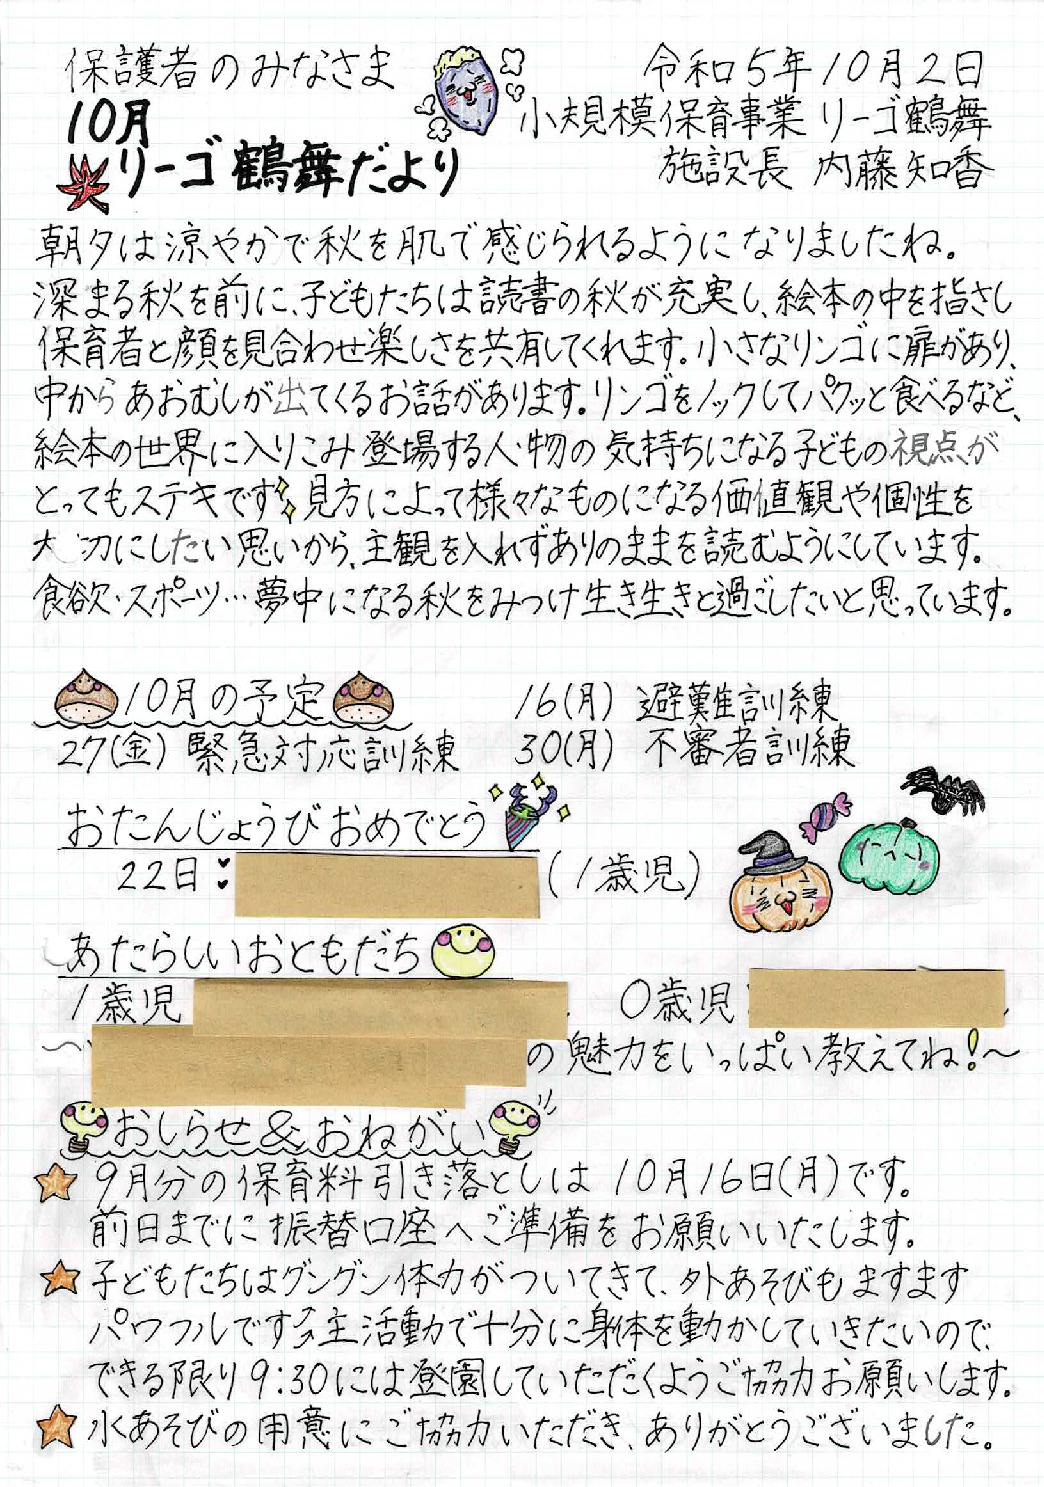 保護者のみなさま
令和5年10月2日
小規模保育事業 リーゴ鶴舞
施設長 内藤知香
10月
リーゴ鶴舞だより
朝夕は涼やかで秋を肌で感じられるようになりましたね。
深まる秋を前に、子どもたちは読書の秋が充実し、絵本の中を指さし
保育者と顔を見合わせ楽しさを共有してくれます。小さなリンゴに扉があり、
中からあおむしが出てくるお話があります。リンゴをノックしてパクッと食べるなど、
絵本の世界に入りこみ登場する人・物の気持ちになる子どもの視点が
とってもステキです 見方によって様々なものになる価値観や個性を
大切にしたい思いから、主観を入れずありのままを読むようにしています。
食欲・スポーツ…夢中になる秋をみつけ生き生きと過ごしたいと思っています。
10月の予定
16(月) 避難訓練
27(金) 緊急対応訓練
30(月) 不審者訓練
おたんじょうびおめでとう
22日:
(1歳児)
あたらしいおともだち
1歳児
0歳児
の魅力をいっぱい教えてね!~
おしらせ&おねがい
★ 9月分の保育料引き落としは10月16日(月)です。
前日までに振替口座へご準備をお願いいたします。
★ 子どもたちはグングン体力がついてきて、外あそびもますます
パワフルです 主活動で十分に身体を動かしていきたいので、
できる限り9:30には登園していただくようご協力お願いします。
★ 水あそびの用意にご協力いただき、ありがとうございました。